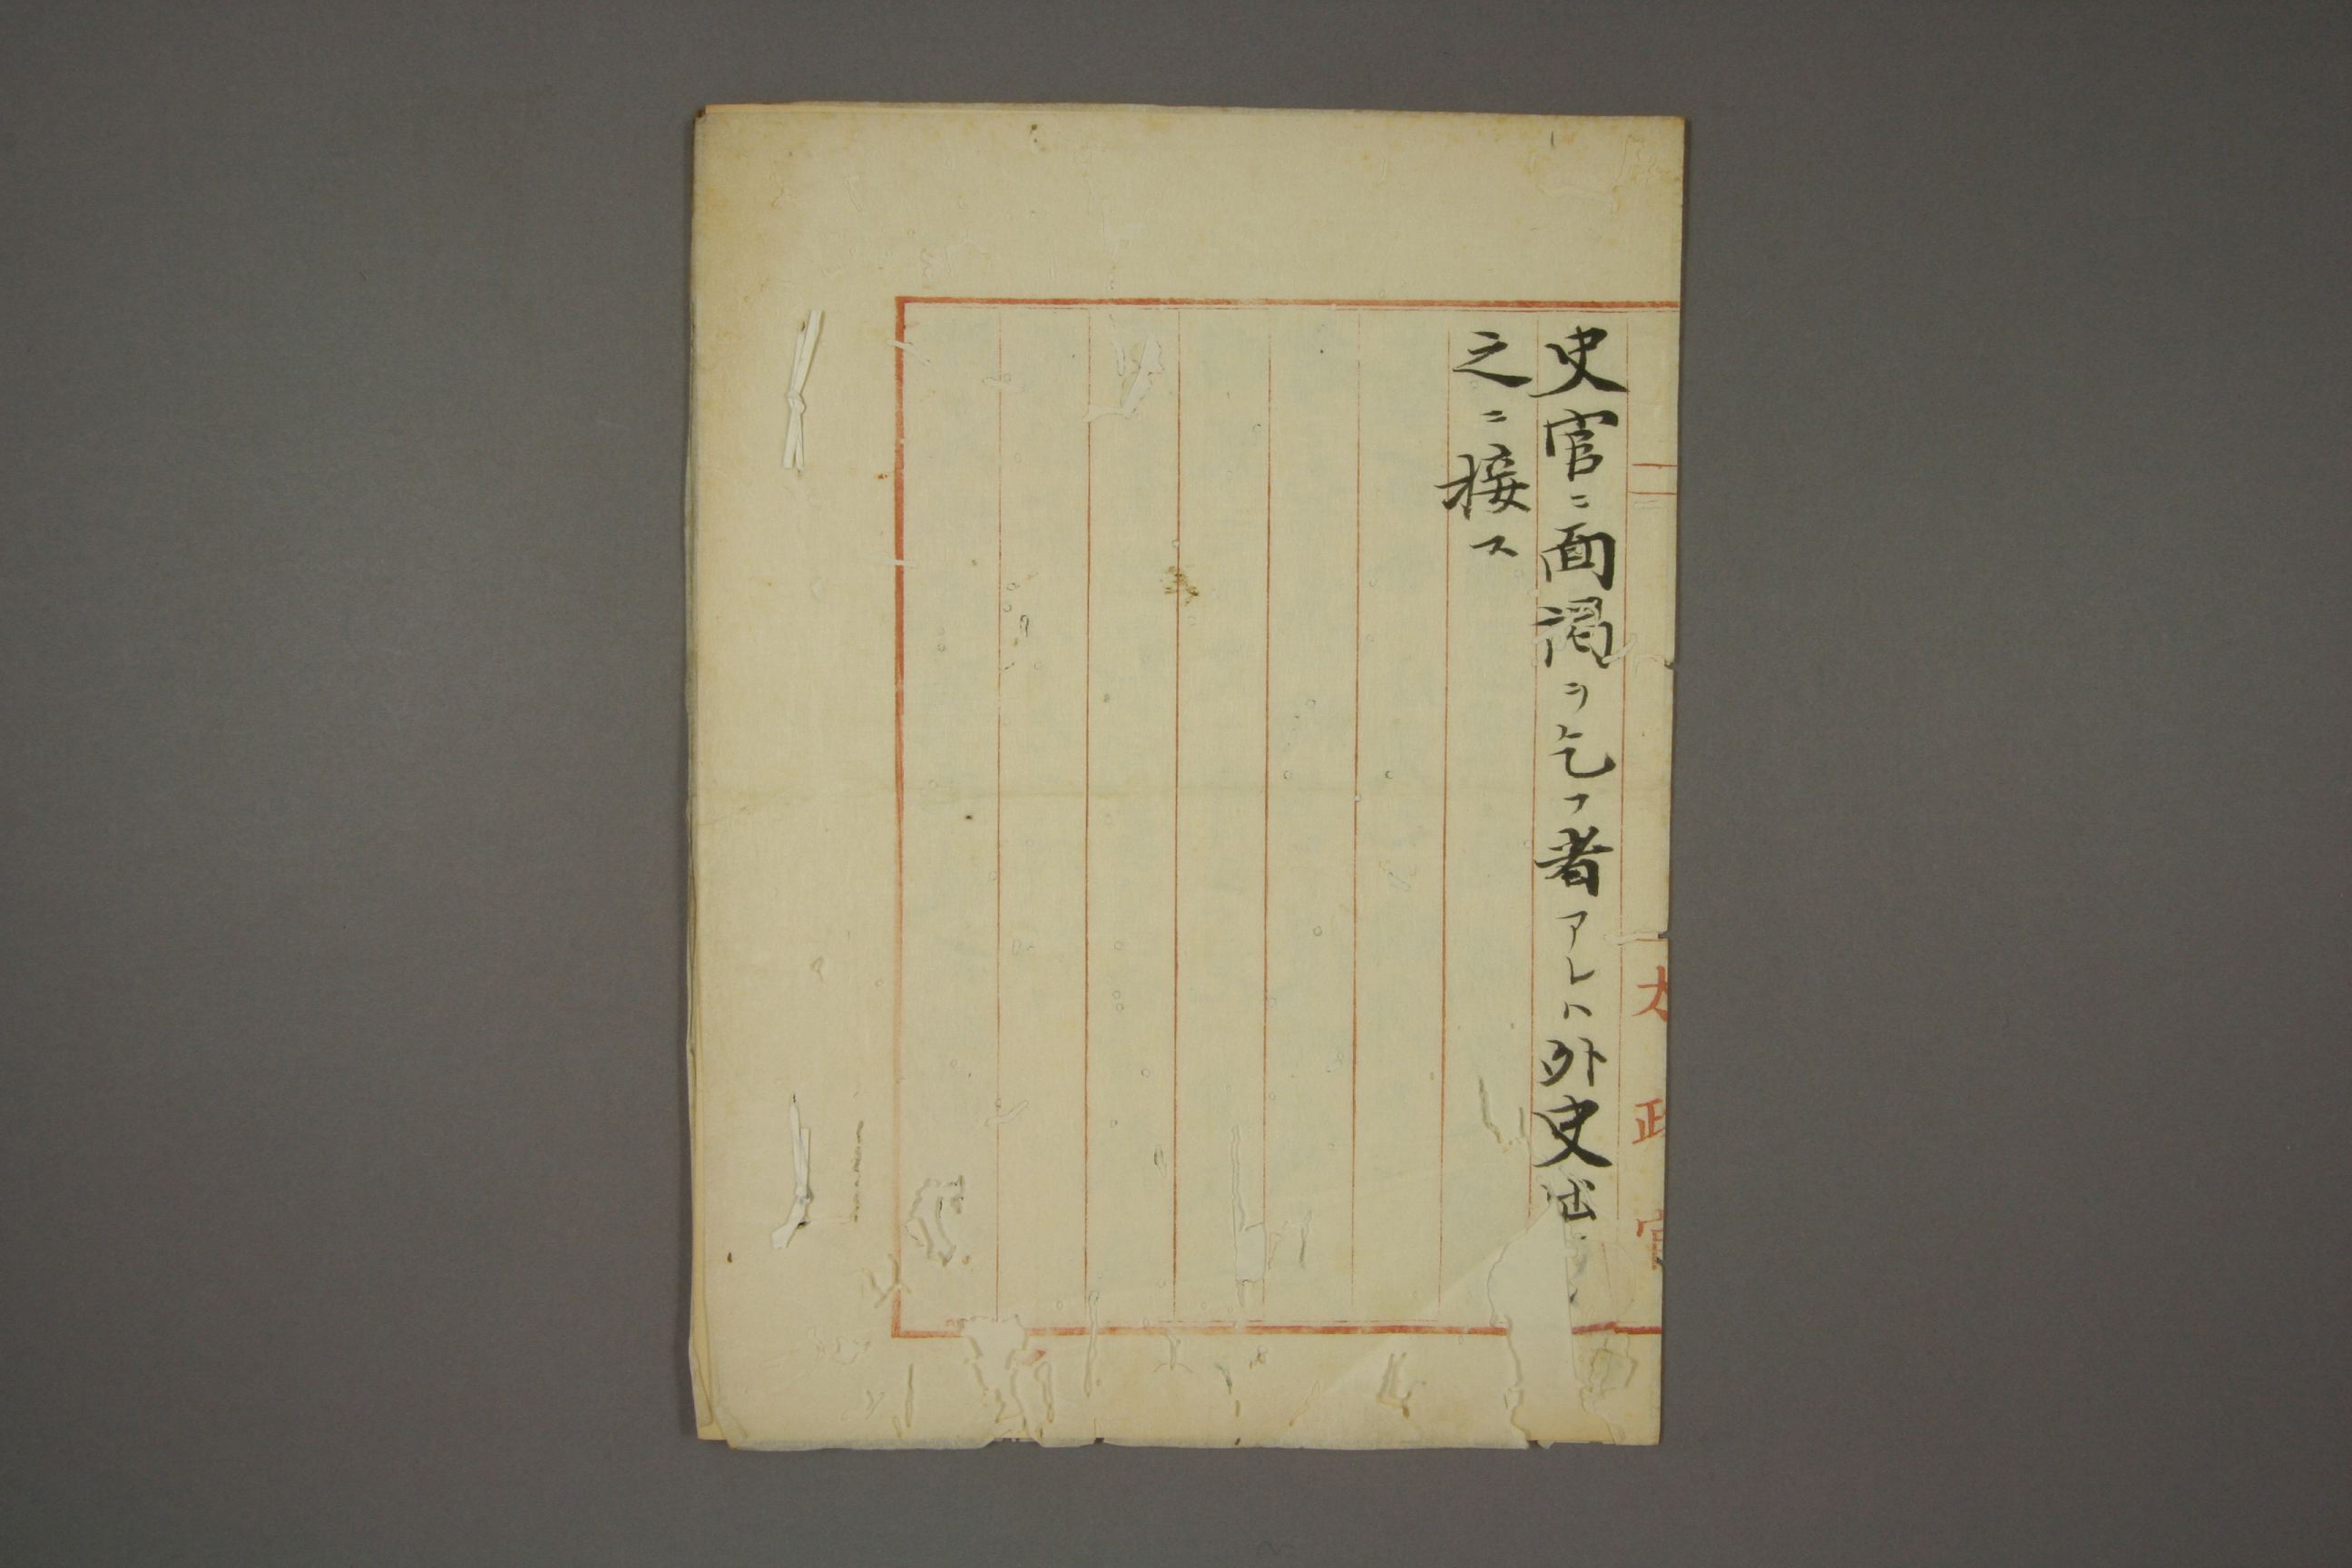 史官ニ面謁ヲ乞フ者アレハ外史出
之ニ接ス
太政官